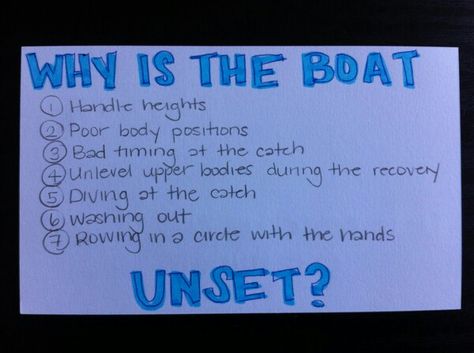 WHY IS THE BOAT
① Handle heights
② Poor body positions
③ Bad timing at the catch
④ Unlevel upper bodies during the recovery
⑤ Diving at the catch
⑥ Washing out
⑦ Rowing in a circle with the hands
UNSET?